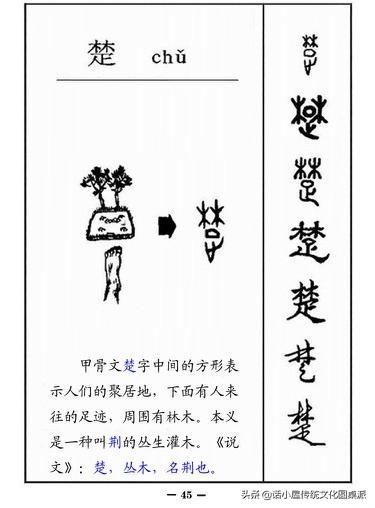 楚 chǔ
甲骨文楚字中间的方形表
示人们的聚居地，下面有人来
往的足迹，周围有林木。本义
是一种叫荆的丛生灌木。《说
文》：楚，丛木，名荆也。
楚
楚
楚
楚
楚
楚
楚
楚
— 45 —
头条 @诺小屋传统文化圆桌派